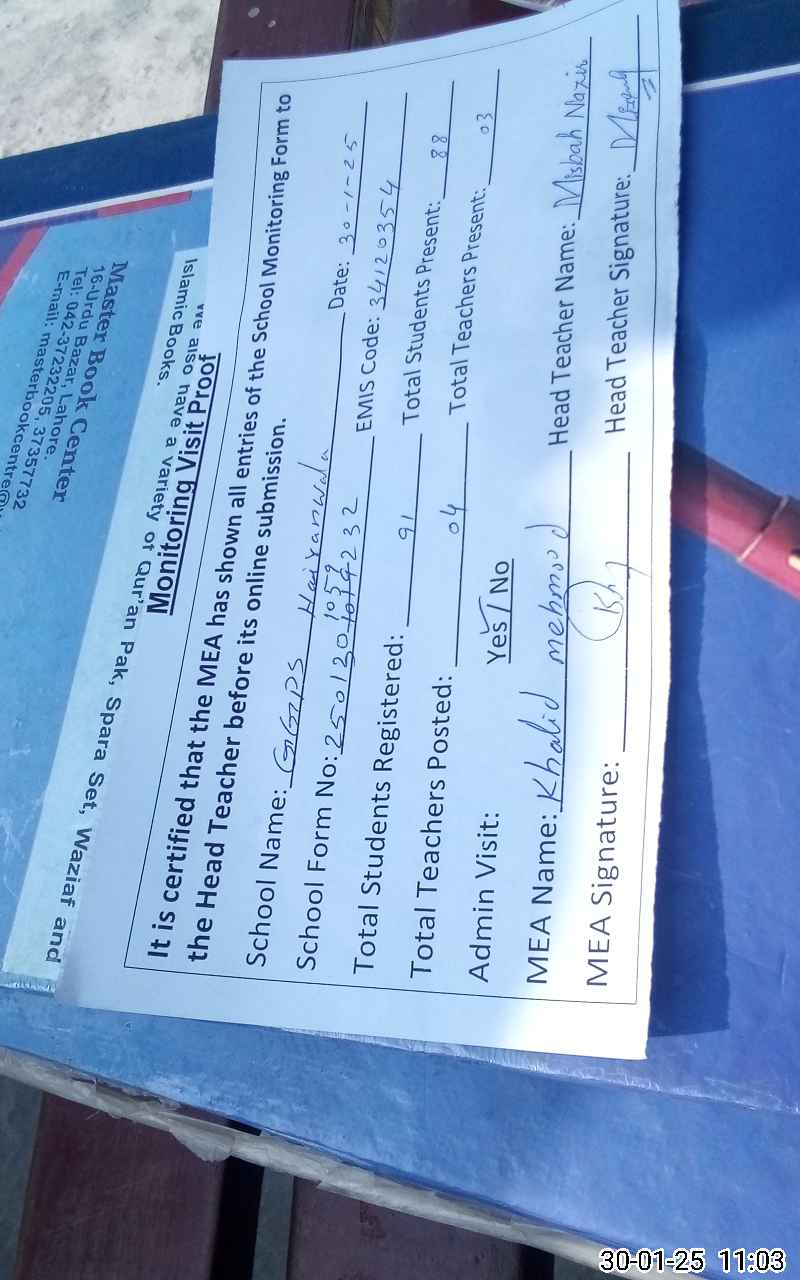 Monitoring Visit Proof
It is certified that the MEA has shown all entries of the School Monitoring Form to
the Head Teacher before its online submission.
School Name: GGPS Haiyanwala Date: 30-1-25
School Form No: 250130 1059232 EMIS Code: 34120354
Total Students Registered: 91 Total Students Present: 88
Total Teachers Posted: 04 Total Teachers Present: 03
Admin Visit: Yes / No
MEA Name: Khalid mehmood Head Teacher Name: Misbah Nazir
MEA Signature: Head Teacher Signature:
we also have a variety of Qur'an Pak, Spara Set, Waziaf and
Islamic Books.
Master Book Center
16-Urdu Bazar, Lahore.
Tel: 042-37232205, 37357732
E-mail: masterbookcentre@
30-01-25 11:03